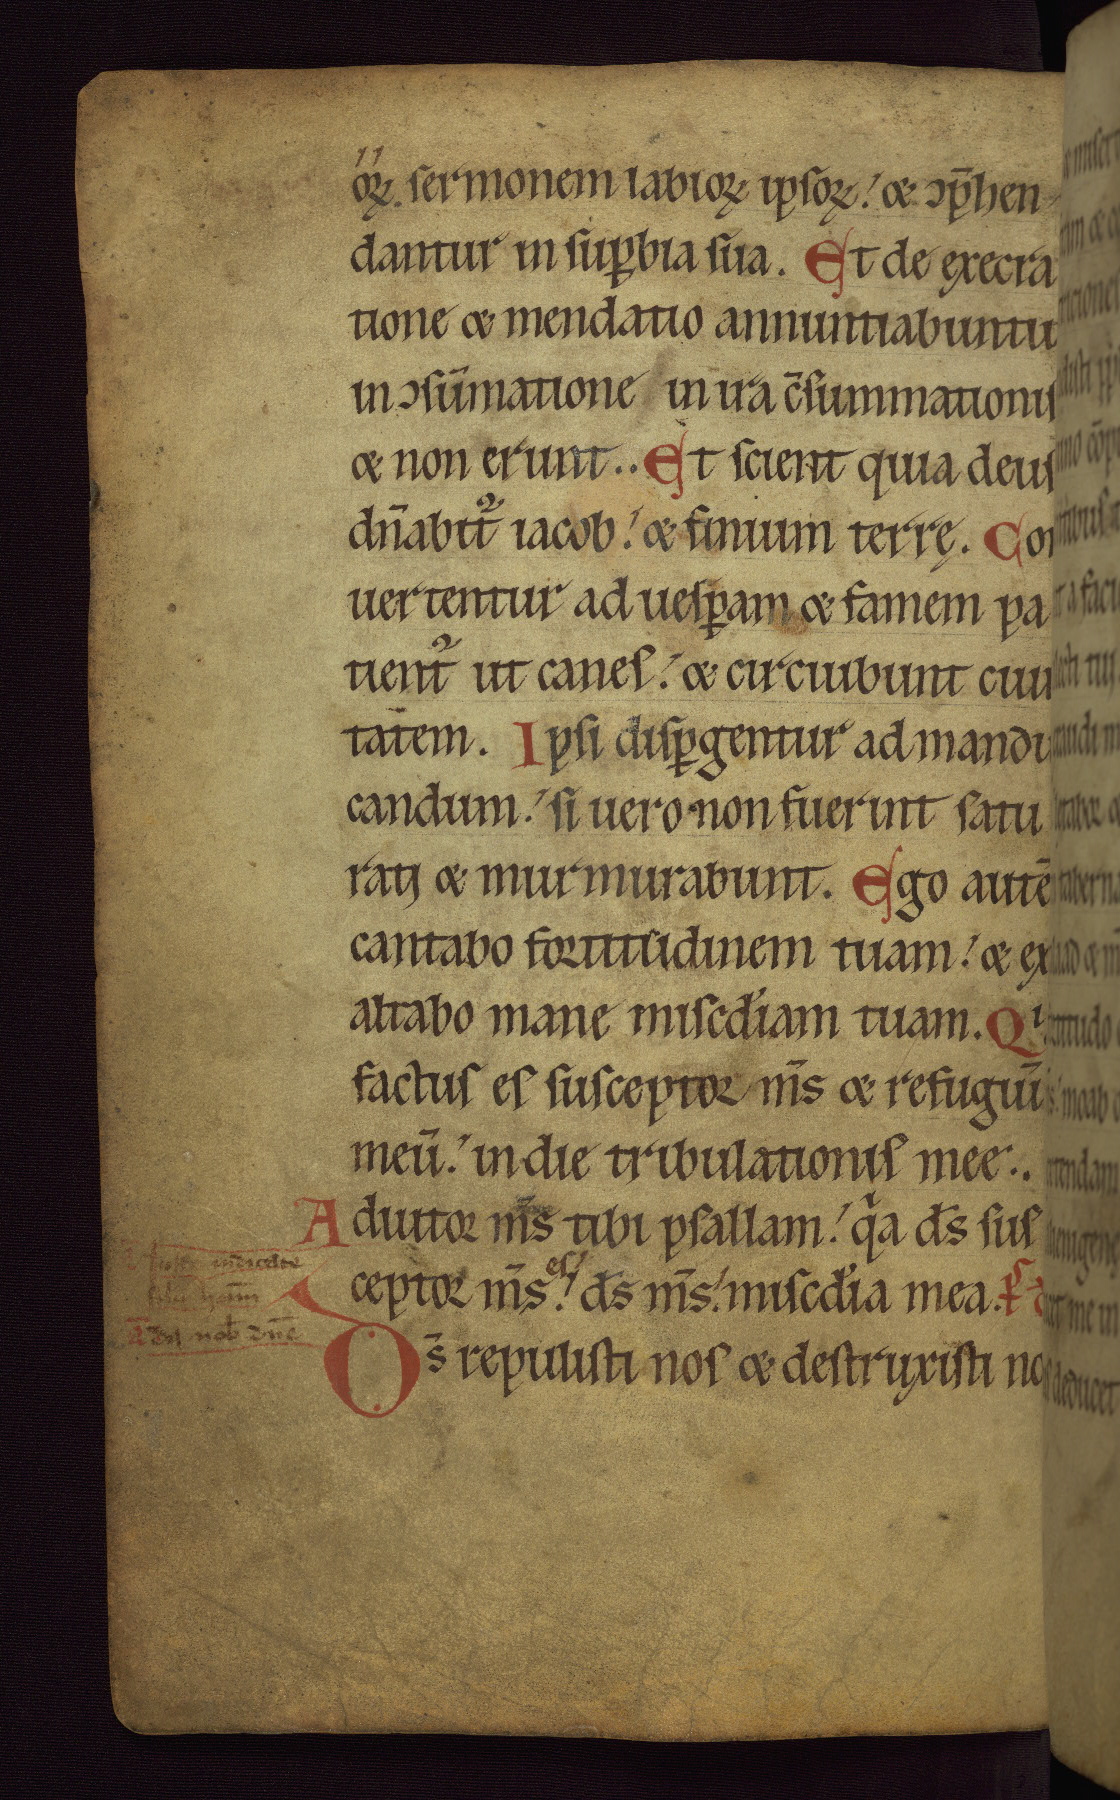 oꝝ. sermonem labioꝝ ipsoꝝ! & ↄp̄hen-
dantur in suꝑbia sua. Et de execra
tione & mendatio annuntiabuntu
in ↄsūmatione in ira c̄summationis
& non erunt.. Et scient quia deus
dn̄abit᷑ iacob! & finium terrę. Con
uertentur ad uesꝑam & famem pa
tient᷑ ut canes! & circuibunt ciui
tatem. Ipsi disꝑgentur ad mandu
candum! si uero non fuerint satu
rati & murmurabunt. Ego autē
cantabo fortitudinem tuam! & ex
altabo mane misc̄diam tuam. Qi
factus es susceptor m̄s & refugiū
meū! in die tribulationis mee..
Adiutor m̄s tibi psallam! q̓a d̄s sus
ceptor m̄s es! d̄s m̄s! misc̄dia mea. p̄s
D̄s repulisti nos & destruxisti nos